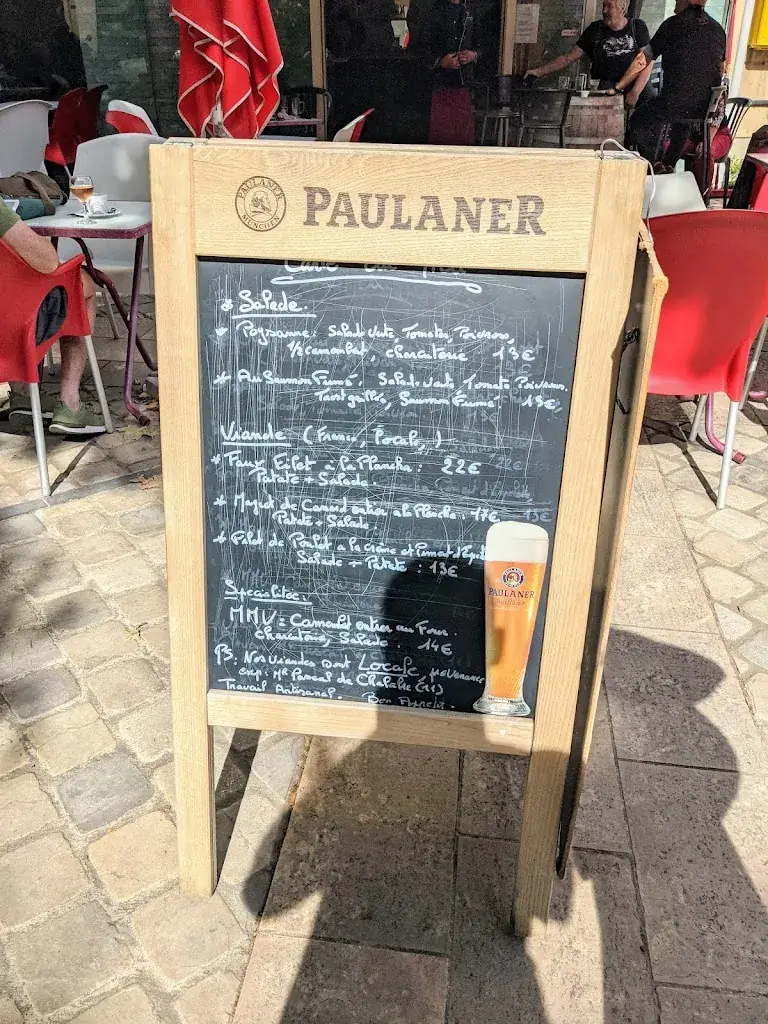 PAULANER
MÜNCHEN
PAULANER
* Salade.
* Paysanne: Salade verte, Tomates, Poivrons,
1/2 camenbert, charcuterie 13€
* Au Saumon Fumé. Salade verte, Tomate Poivrons,
Saumon Fumé. 13€
Viande (France, Locale,)
* Faux Filet a la Plancha: 22€
Patate + Salade.
* Magret de Canard entier a la Plancha: 17€
Patate + Salade.
* Filet de Poulet a la crème et Piment d'Espelette
Salade + Patate: 13€
PAULANER
Spécialitée:
MMV = Camembert entier au Four.
charcuterie, Salade. 14€
PS: Nos Viandes sont Locale, provenance
exp: Mr Pascal de
Travail Artisanal. Bon Appetit.